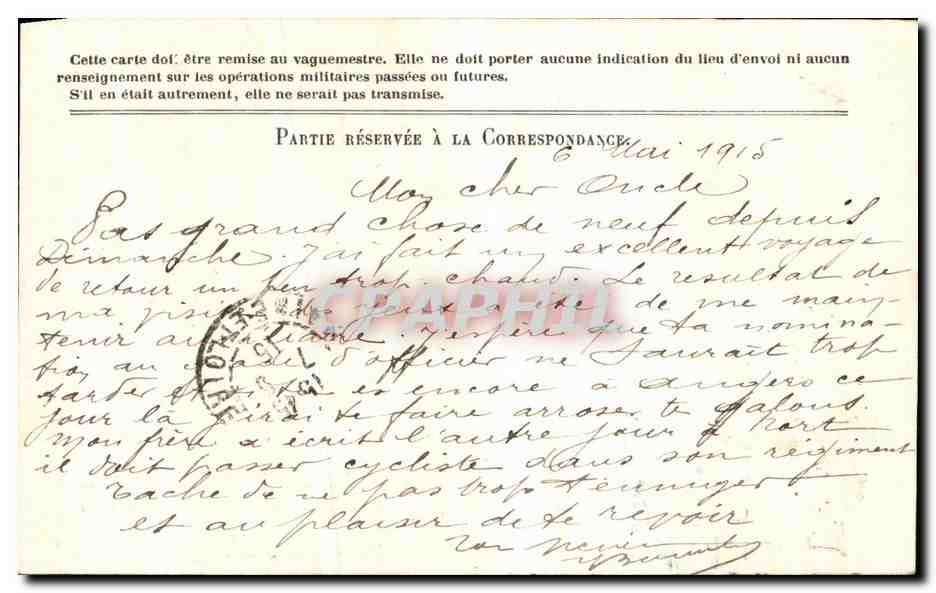 Cette carte doit être remise au vaguemestre. Elle ne doit porter aucune indication du lieu d'envoi ni aucun
renseignement sur les opérations militaires passées ou futures.
S'il en était autrement, elle ne serait pas transmise.
PARTIE RÉSERVÉE À LA CORRESPONDANCE.
6 Mai 1915
Mon cher Oncle
Pas grand chose de neuf depuis
Dimanche. J'ai fait un excellent voyage
de retour un peu trop chaud. Le resultat de
ma visite des yeux a été de me main-
tenir auxiliaire. J'espère que ta nomina-
tion au grade d'officier ne saurait trop
tarder et si tu es encore à Angers ce
jour là j'irai te faire arroser te galons
Mon frère a écrit l'autre jour à
il doit passer cycliste dans son régiment
Tache de ne pas trop t'ennuyer
et au plaisir de te revoir
Ton neveu
CPAPHIL